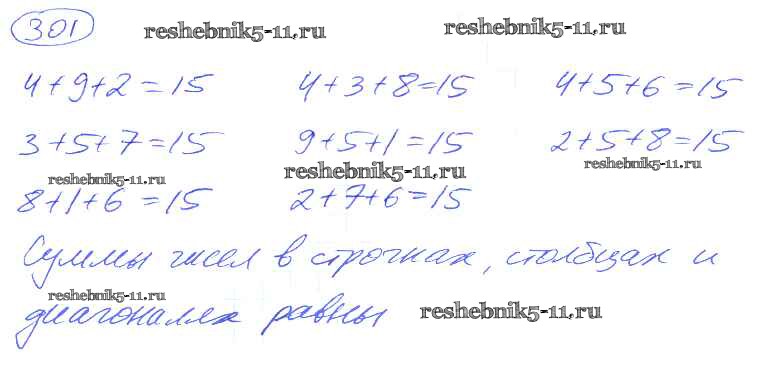 301 reshebnik5-11.ru reshebnik5-11.ru
4+9+2=15 4+3+8=15 4+5+6=15
3+5+7=15 9+5+1=15 2+5+8=15
reshebnik5-11.ru reshebnik5-11.ru reshebnik5-11.ru
8+1+6=15 2+7+6=15
Суммы чисел в строчках, столбцах и
reshebnik5-11.ru
диагоналях равны reshebnik5-11.ru